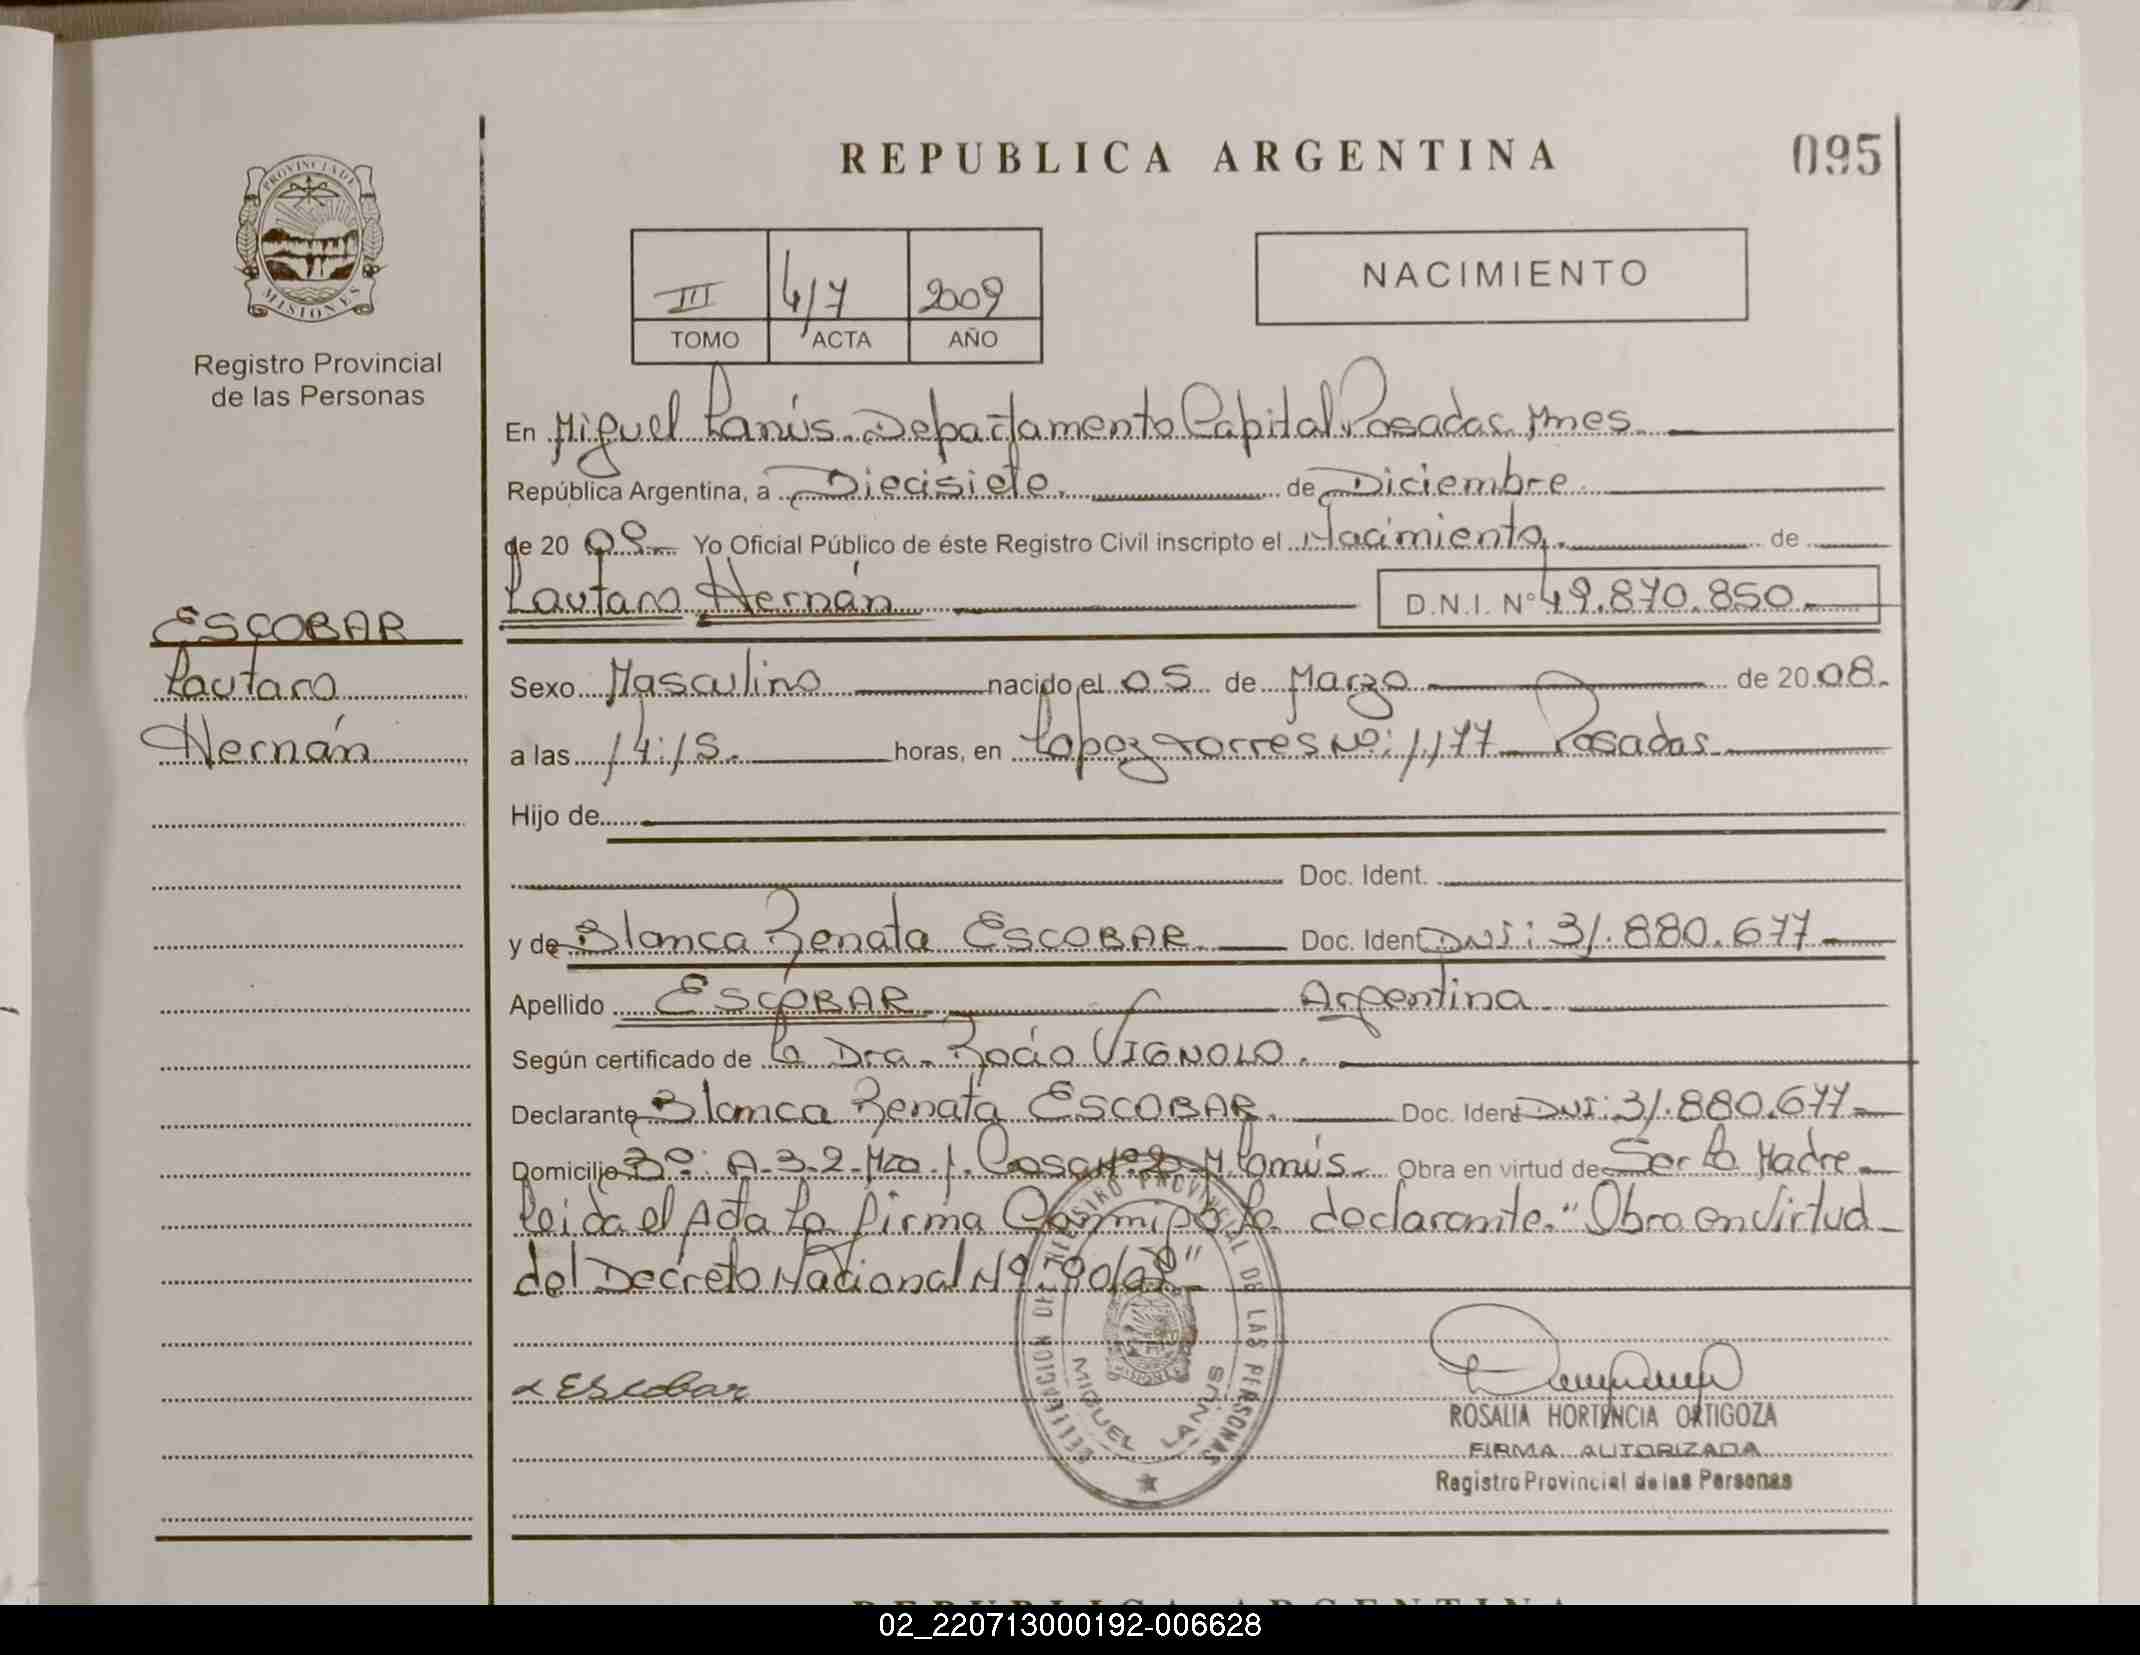 REPUBLICA ARGENTINA
095
PROVINCIA DE
MISIONES
Registro Provincial
de las Personas
III 417 2009
TOMO ACTA AÑO
NACIMIENTO
En Miguel Lanús. Departamento Capital Posadas Mnes.
República Argentina, a Diecisiete. de Diciembre.
de 20 09 Yo Oficial Público de éste Registro Civil inscripto el Nacimiento. de
Lautaro Hernán D.N.I. Nº 49.870.850.
ESCOBAR
Lautaro
Hernán
Sexo Masculino nacido el 05 de Marzo de 20 08.
a las 14:15. horas, en Lopez Torres Nº: 1177 Posadas
Hijo de
Doc. Ident.
y de Blanca Renata ESCOBAR Doc. Ident DNI: 31.880.677
Apellido ESCOBAR Argentina
Según certificado de la Dra. Rocío VIGNOLO.
Declarante Blanca Renata ESCOBAR. Doc. Ident DNI: 31.880.677
Domicilio Bº: A-3-2-Mza 1. Casa Nº 2 M. Lanús. Obra en virtud de Ser la Madre
Leida el Acta La firma Conmigo la declarante. "Obra en Virtud
del Decreto Nacional Nº 90/09"
Escobar
DELEGACION DEL REGISTRO PROVINCIAL DE LAS PERSONAS
MIGUEL LANUS
ROSALIA HORTENCIA ORTIGOZA
FIRMA AUTORIZADA
Registro Provincial de las Personas
REPUBLICA ARGENTINA
02_220713000192-006628